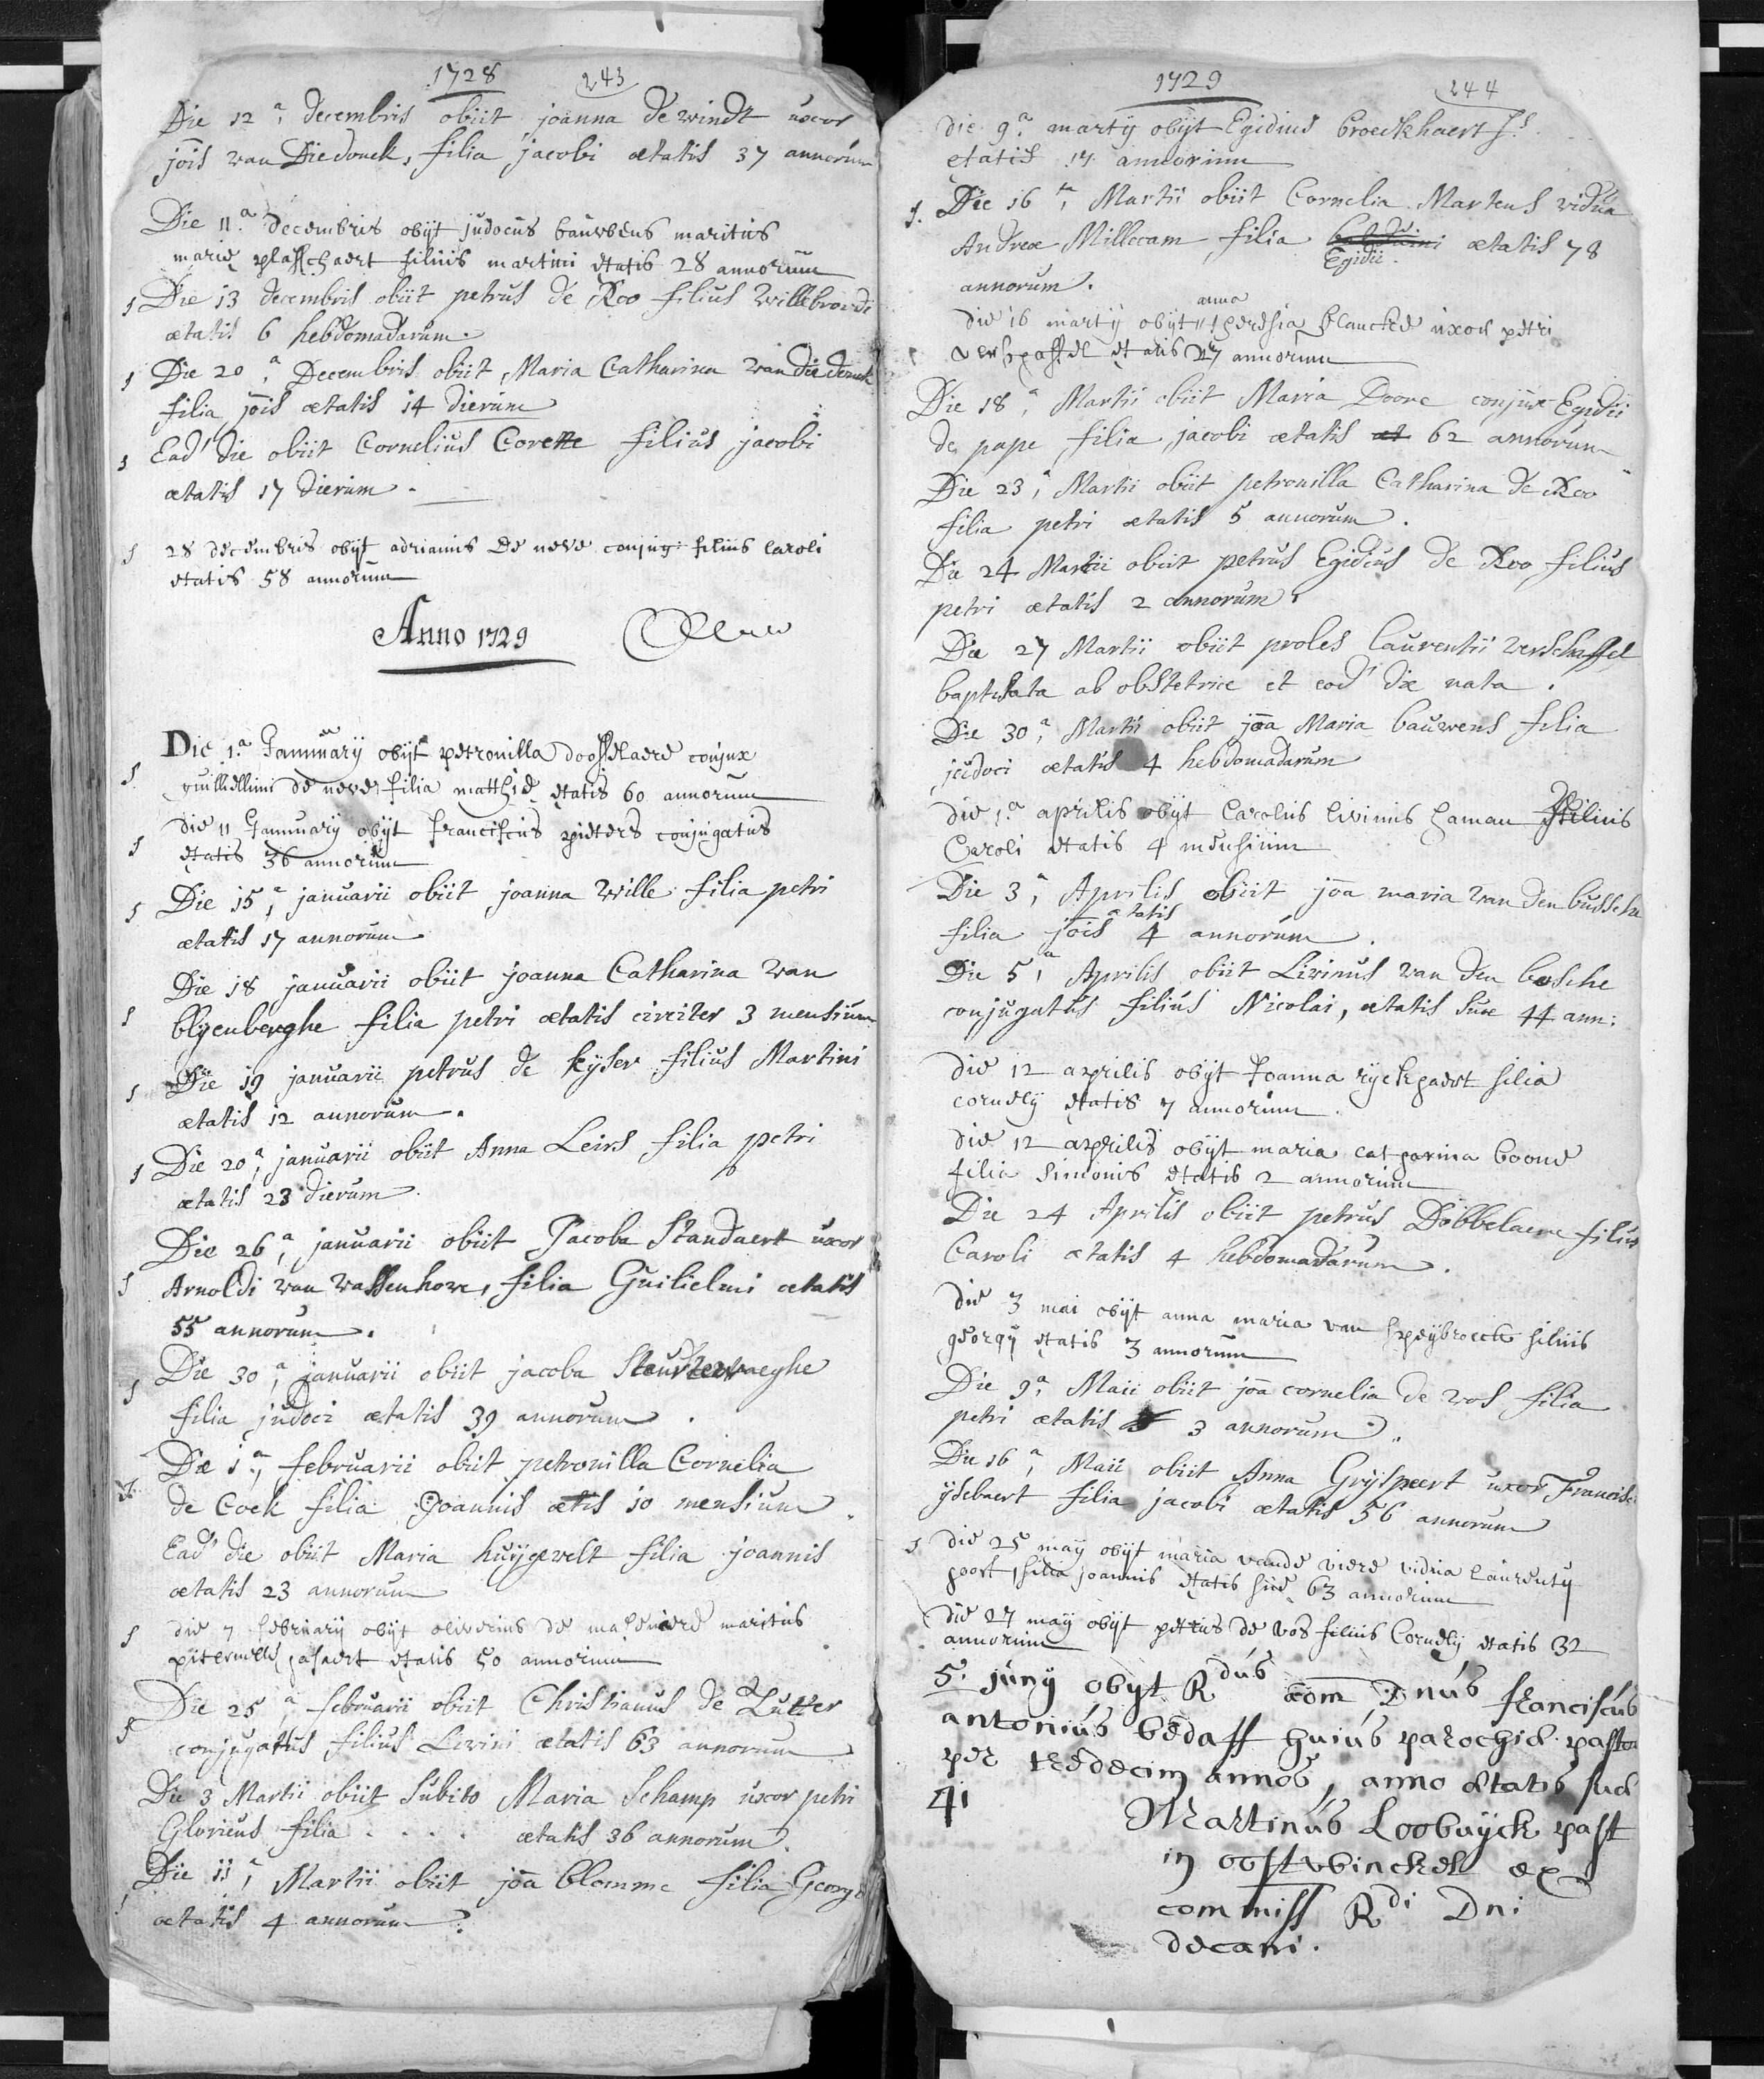 1728 243
Die 12.a decembris obiit joanna de windt uxor
jois van Diedonck, filia jacobi ætatis 37 annorum
Die 11.a decembris obijt judocus bauwens maritus
marie plasschaert filius martini etatis 28 annorum
Die 13 decembris obiit petrus de Roo filius Willebrordi
ætatis 6 hebdomadarum.
Die 20.a Decembris obiit Maria Catharina van diedonck
filia jois ætatis 14 dierum
Ead die obiit Cornelius Corette filius jacobi
ætatis 17 dierum.
28 decembris obijt adrianus De neve conjug: filius caroli
etatis 58 annorum
Anno 1729
Die 1.a Januuarij obijt petronilla dossselaere conjux
guilliellmi de neve filia matthie etatis 60 annorum
die 11 Januuarij obijt franciscus pieters conjugatus
etatis 36 annorum
Die 15.a januarii obiit joanna Wille filia petri
ætatis 17 annorum
Die 18 januarii obiit joanna Catharina van
blyenberghe filia petri ætatis circiter 3 mensium
Die 19 januarii petrus de kyser filius Martini
ætatis 12 annorum.
Die 20.a januarii obiit Anna Leirs filia petri
ætatis 23 dierum
Die 26.a januarii obiit Jacoba Standaert uxor
Arnoldi van Wassenhove, filia Guilielmi ætatis
55 annorum.
Die 30.a januarii obiit jacoba
filia judoci ætatis 39 annorum.
Die 1.a februarii obiit petronilla Cornelia
de Cock filia Joannis ætis 10 mensium
Ead die obiit Maria huijgevelt filia joannis
ætatis 23 annorum
die 7 februarij obijt oliverius de maseniere maritus
etatis 50 annorum
Die 25.a februarii obiit Christianus de Lutter
conjugatus filius Livini ætatis 63 annorum
Die 3 Martii obiit subito Maria Schamp uxor petri
Glorieus filia . . . . ætatis 36 annorum.
Die 11.a Martii obiit joa blomme filia Georgii
ætatis 4 annorum.
1729 244
die 9.a martij obijt Egidius broeckhaert f.s
etatis 14 annorum
Die 16.a Martii obiit Cornelia Martens vidua
Andreæ Millecam filia balduini ætatis 78
Egidii.
annorum.
anna
die 16 martij obijt theresia blancke uxor petri
verschaffel etatis 27 annorum
Die 18.a Martii obiit Maria Doove conjux Egidii
de pape filia jacobi ætatis æt 62 annorum
Die 23.a Martii obiit petronilla Catharina de Roo
filia petri ætatis 5 annorum.
Die 24 Martii obiit petrus Egidius de Roo filius
petri ætatis 2 annorum.
Die 27 Martii obiit proles laurentii verschaffel
baptisata ab obstetrice et eod die nata.
Die 30.a Martii obiit joa Maria bauwens filia
judoci ætatis 4 hebdomadarum
die 1.a aprilis obijt Carolus livinus haman filius
Caroli etatis 4 mensium
Die 3.a Aprilis obiit joa maria van den bussche
ætatis
filia jois 4 annorum.
Die 5.a Aprilis obiit Livinus van den bosche
conjugatus filius Nicolai, ætatis suæ 44 ann:
die 12 aprilis obijt Joanna ryckhaert filia
cornelij etatis 7 annorum.
die 12 aprilis obijt maria catharina boone
filia simonis etatis 2 annorum
Die 24 Aprilis obiit petrus Dobbelaere filius
Caroli ætatis 4 hebdomadarum.
die 3 mai obijt anna maria van speybroeck filius
georgij etatis 3 annorum
Die 9.a Maii obiit joa cornelia de vos filia
petri ætatis 3 annorum.
Die 16.a Maii obiit Anna Gryspeert uxor Francisci
ysebaert filia jacobi ætatis 56 annorum
die 25 maij obijt maria vande viere vidua laurentij
poort, filia joannis etatis sue 63 annorum
die 27 maij obijt petrus de vos filius Cornelij etatis 32
annorum
5. junij obijt Rdus adm Dnus franciscus
antonius bedaff huius parochiæ pastor
per tredecim annos, anno ætatis suæ
41
Martinus Loobuyck past
in oostwinckel ex
commiss Rdi Dni
decani.